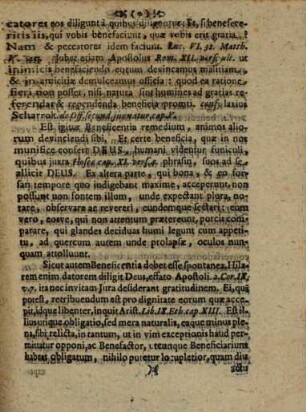 catores eos diligunt à quibus diliguntur: Et, si benefece-
ritis iis, qui vobis benefaciunt, quæ vobis erit gratia?
Nam & peccatores idem faciunt. Luc. VI. 32. Matth.
Jubet etiam Apostolus Rom. XII. vers. ult. ut
inimicis benefaciendo eorum devincamus malitiam,
& in amicitiæ demulceamus officia: quod ea ratione
fieri non posset, nisi natura sint homines ad gratias re-
ferendas & rependenda beneficia promti. laxius
Selurrok. de Diss. secund. jus natur. cap. V.
Est igitur Beneficentia remedium, animos alio-
rum devinciendi sibi. Et certe beneficia, quæ in nos
munifice confert DEUS, humani videntur funiculi,
quibus juxta Hoseæ cap. XI. vers. 4. phrasin, suos ad se
allicit DEUS. Ex altera parte, qui bona, & eo for-
san tempore quo indigebant maxime, acceperunt, non
possunt non fontem illum, unde expectant plura, no-
tare, observare ac revereri, eundemque sectari: cum
vero, e contra, qui non attentum prætereunt, porcis com-
parare, qui glandes deciduas humi legunt cum appeti-
tu, ad quercum autem unde prolapsæ, oculos nun-
quam attollunt.
Sicut autem Beneficentia debet esse spontanea. Hila-
rem enim datorem diligit Deus, effato Apostoli 2. Cor. IX,
v. 7. ita nec invitam Jura desiderant gratitudinem. Ei, qui
potest, retribuendum est pro dignitate eorum quæ acce-
pit, idque libenter, inquit Arist. Lib. IX Eth. cap. XIII. Est il-
lius utique obligatio, sed mera naturalis, ex quæ minus ple-
ni, sibi relicta, in tantum, ut in vim exceptionis haud per-
mittatur opponi, ac Benefactor, utcunque Beneficiarium
habeat obligatum, nihilo putetur locupletior, quam diu